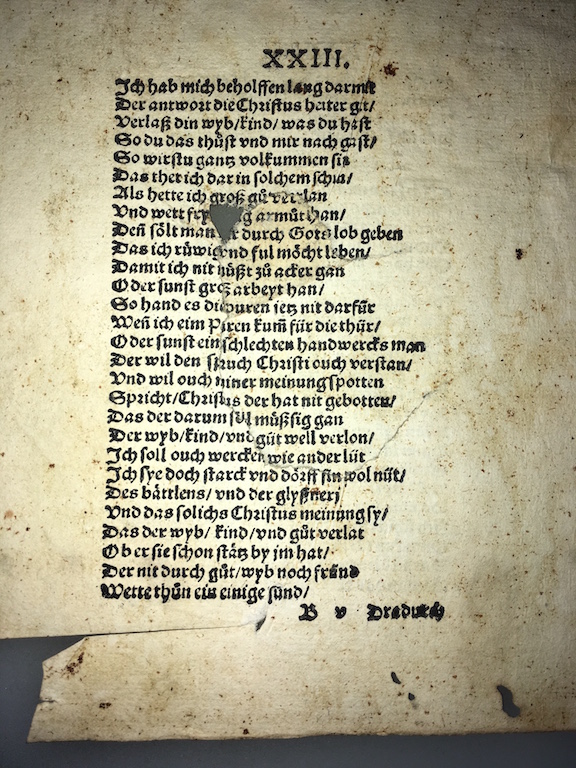 XXIII.
Ich hab mich beholffen lang darmit
Der antwort die Christus heiter git/
Verlaß din wyb/kind/ was du hast
So du das thůst vnd mir nach gast/
So wirstu gantz volkummen sin
Das thet ich dar in solchem schin/
Als hette ich groß gůt verlan
Vnd wett armůt han/
Deñ sölt man durch Gots lob geben
Das ich růwig vnd ful möcht leben/
Damit ich nit můßt zů acker gan
Oder sunst groß arbeyt han/
So hand es die puren ietz nit darfür
Weñ ich eim Puren kum̃ für die thür/
Oder sunst ein schlechten handwercks man
Der wil den spruch Christi ouch verstan/
Vnd wil ouch miner meinung spotten
Spricht/Christus der hat nit gebotten/
Das der darum söl můßsig gan
Der wyb/kind/vnd gůt well verlon/
Ich soll ouch wercken wie ander lüt
Ich sye doch starck vnd dörff sin wol nüt/
Des bättlens/ vnd der glyßnerj
Vnd das solichs Christus meinung sy/
Das der wyb/ kind/vnd gůt verlat
Ob er sie schon stätz by jm hat/
Der nit durch gůt/wyb noch fründ
Wette thůn ein einige sünd/
B v